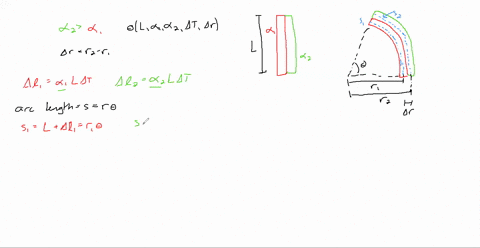 α₂ > α₁
θ(L, α₁, α₂, ΔT, Δr)
Δr = r₂ - r₁
Δl₁ = α₁ L ΔT
Δl₂ = α₂ L ΔT
arc length = s = r θ
s₁ = L + Δl₁ = r₁ θ
s
L
α₁
α₂
s₁
s₂
θ
r₁
r₂
Δr